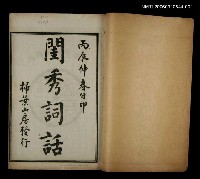 丙辰仲春石印
閨秀詞話
掃葉山房發行